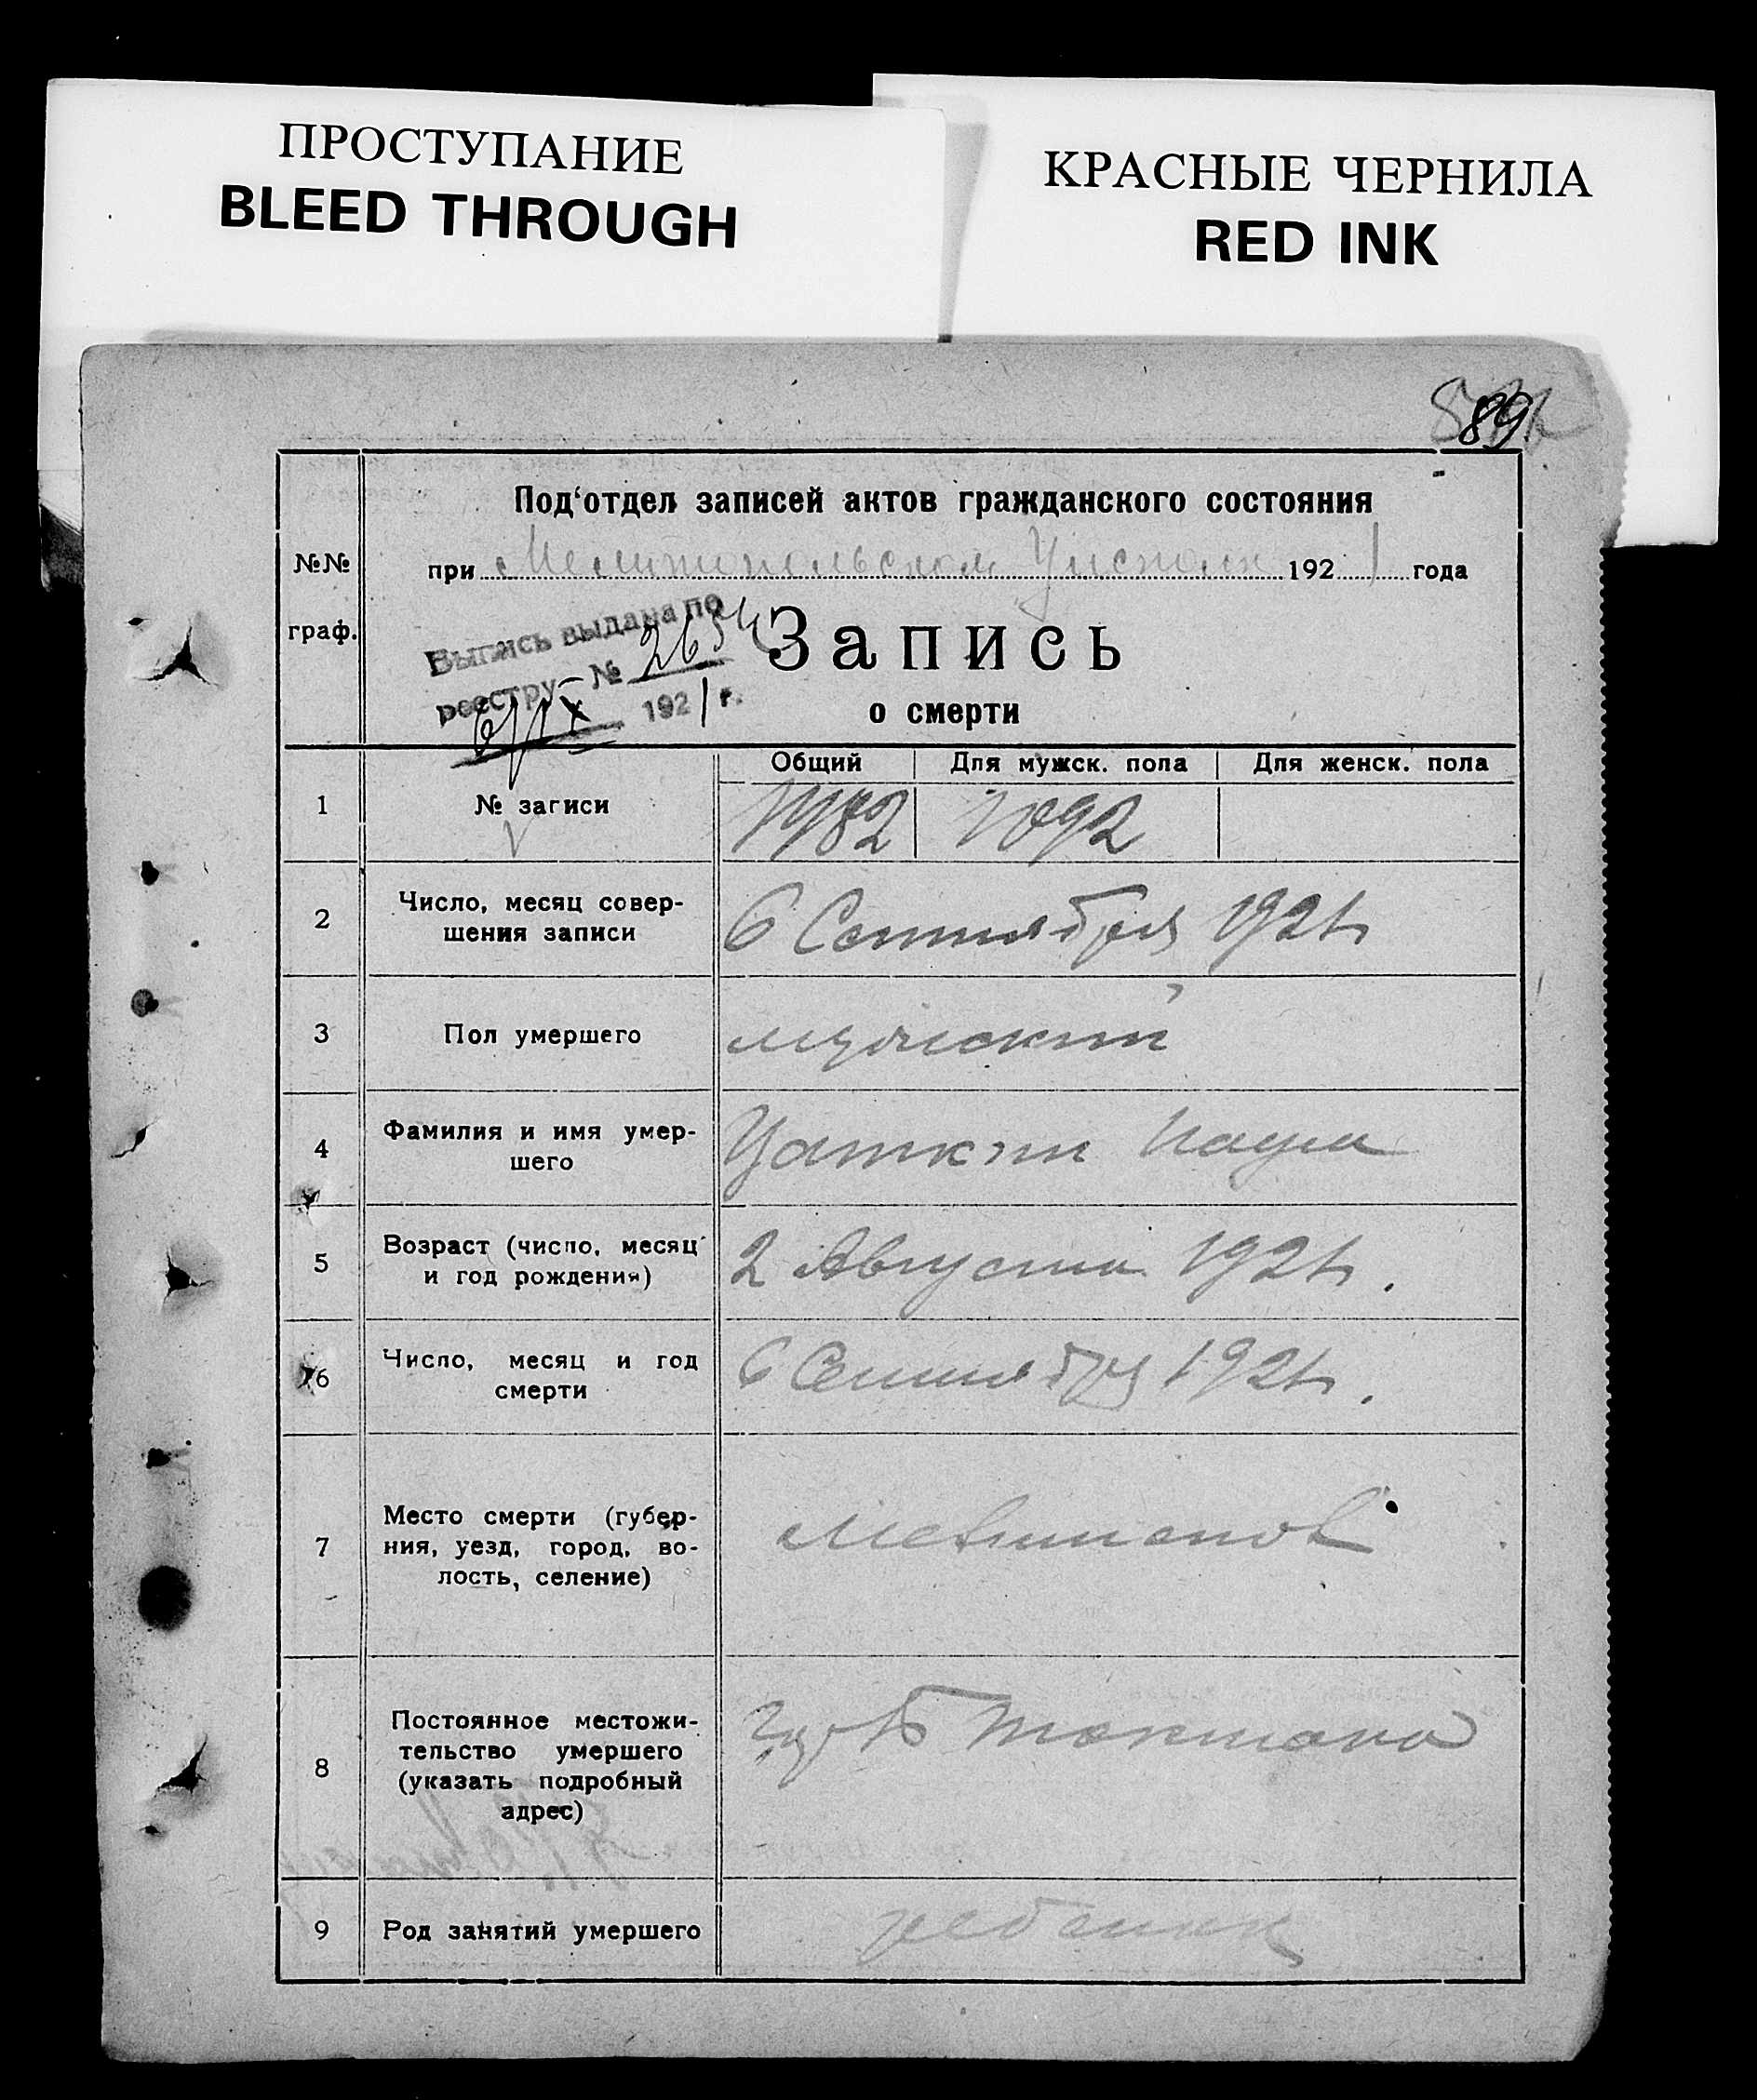 ПРОСТУПАНИЕ
BLEED THROUGH
КРАСНЫЕ ЧЕРНИЛА
RED INK
89
Под‘отдел записей актов гражданского состояния
№№ граф.
при Мелитопольском Уисполк 1921 года
Выпись выдана по
реестру № 2654
6/IX 1921 г.
Запись
о смерти
Общий Для мужск. пола Для женск. пола
1 № записи 1982 1092
2 Число, месяц совер-
шения записи 6 Сентября 1921 г.
3 Пол умершего мужской
4 Фамилия и имя умер-
шего
5 Возраст (число, месяц
и год рождения) 2 Августа 1921 г.
6 Число, месяц и год
смерти 6 Сентября 1921 г.
7 Место смерти (губер-
ния, уезд, город, во-
лость, селение) Мелитополь
8 Постоянное местожи-
тельство умершего
(указать подробный
адрес) Б Токмак
9 Род занятий умершего ребенок